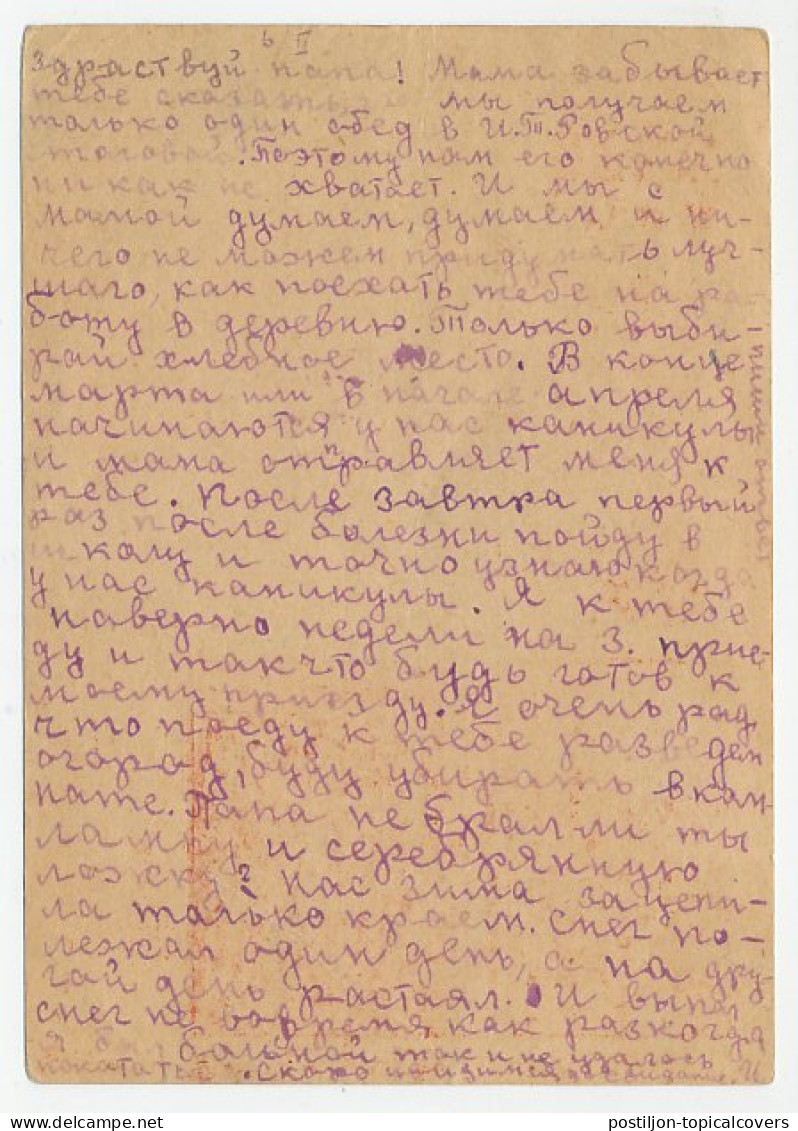 6/II
Здраствуй папа! Мама забывает
тебе сказать мы получаем
только один обед в И.Т.Ровской
столовой. Поэтому нам его конечно
ни как не хватает. И мы с
мамой думаем, думаем и ни-
чего не можем придумать луч-
шаго, как поехать тебе на ра-
боту в деревню. Только выби-
рай хлебное место. В конце
марта или в начале апреля
начинаются у нас каникулы
и мама отправляет меня к
тебе. После завтра первый
раз после болезни пойду в
школу и точно узнаю когда
у нас каникулы. Я к тебе
наверно недели на 3. прие-
ду и так что будь готов к
моему приезду. Я очень рад
что поеду к тебе разведем
огород, буду убирать в ком-
нате. Папа не брал ли ты
лампу и серебрянную
ложку? нас зима зацепи-
ла только краем. снег по-
лежал один день, а на дру-
гой день растаял. И выпал
снег не вовремя как раз когда
я был больной так и не удалось
покататься. Скоро увидимся досвидание. И
пиши ответ
postiljon-topicalcovers